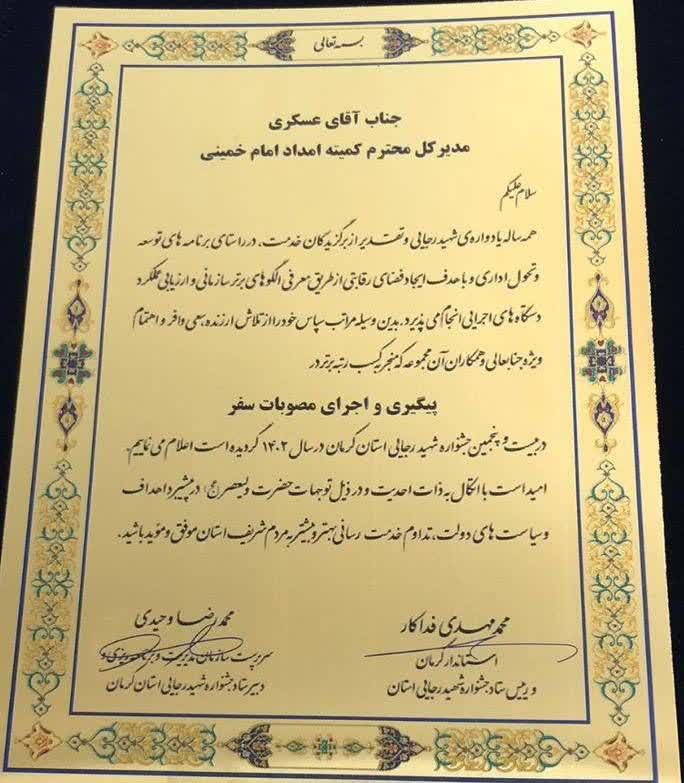 بسمه تعالی
جناب آقای عسکری
مدیر کل محترم کمیته امداد امام خمینی
سلام علیکم
همه ساله یادواره‌ی شهید رجایی و تقدیر از برگزیدگان خدمت، در راستای برنامه های توسعه
و تحول اداری و با هدف ایجاد فضای رقابتی از طریق معرفی الگوهای برتر سازمانی و ارزیابی عملکرد
دستگاه های اجرایی انجام می پذیرد. بدین وسیله مراتب سپاس خود را از تلاش ارزنده، سعی وافر و اهتمام
ویژه جنابعالی و همکاران آن مجموعه که منجر به کسب رتبه برتر در
پیگیری و اجرای مصوبات سفر
در بیست و پنجمین جشنواره شهید رجایی استان کرمان در سال ۱۴۰۲ گردیده است اعلام می نماییم.
امید است با اتکال به ذات احدیت و در ذیل توجهات حضرت ولیعصر (عج) در پیشبرد اهداف
و سیاست های دولت، تداوم خدمت رسانی بهتر و بیشتر به مردم شریف استان موفق و مؤید باشید.
محمد مهدی فداکار
استاندار کرمان
و رییس ستاد جشنواره شهید رجایی استان
محمدرضا وحیدی
سرپرست سازمان مدیریت و برنامه ریزی و
دبیر ستاد جشنواره شهید رجایی استان کرمان